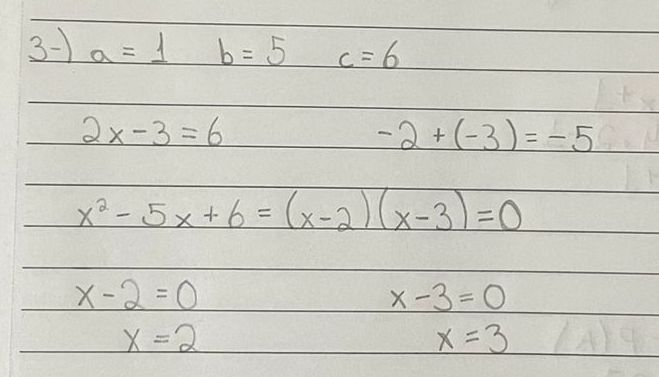 3-) a = 1 b = 5 c = 6
2x - 3 = 6 -2 + (-3) = -5
x² - 5x + 6 = (x-2)(x-3) = 0
x - 2 = 0 x - 3 = 0
x = 2 x = 3